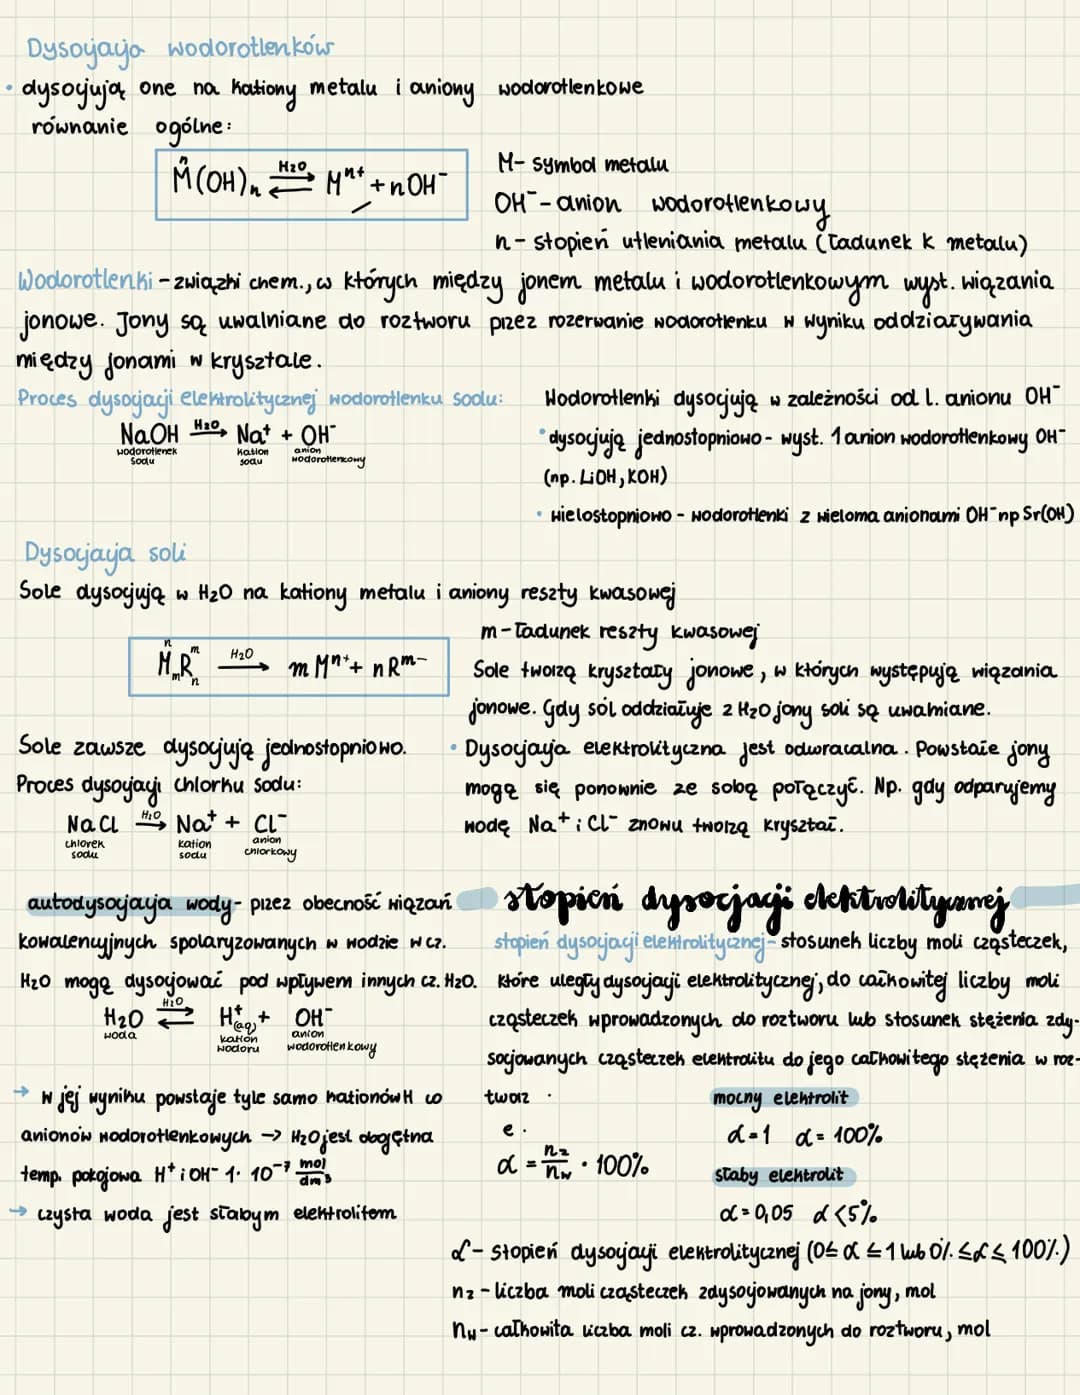 Dysocjacja wodorotlenków
• dysocjują one na kationy metalu i aniony wodorotlenkowe
równanie ogólne:
M(OH)n ⇌ Mⁿ⁺ + nOH⁻
n
H₂O
M- symbol metalu
OH⁻ - anion wodorotlenkowy
n - stopień utleniania metalu (ładunek k metalu)
Wodorotlenki - związki chem., w których między jonem metalu i wodorotlenkowym wyst. wiązania
jonowe. Jony są uwalniane do roztworu przez rozerwanie wodorotlenku w wyniku oddziaływania
między jonami w krysztale.
Proces dysocjacji elektrolitycznej wodorotlenku sodu:
H₂O
NaOH → Na⁺ + OH⁻
wodorotlenek sodu
kation sodu
anion wodorotlenkowy
Wodorotlenki dysocjują w zależności od l. anionu OH⁻
• dysocjują jednostopniowo - wyst. 1 anion wodorotlenkowy OH⁻
(np. LiOH, KOH)
• wielostopniowo - wodorotlenki z wieloma anionami OH⁻ np Sr(OH)
Dysocjacja soli
Sole dysocjują w H₂O na kationy metalu i aniony reszty kwasowej
n m
H₂O
MmRn → m Mⁿ⁺ + n Rᵐ⁻
m - ładunek reszty kwasowej
Sole tworzą kryształy jonowe, w których występują wiązania
jonowe. Gdy sól oddziałuje z H₂O jony soli są uwalniane.
Sole zawsze dysocjują jednostopniowo.
Proces dysocjacji chlorku sodu:
H₂O
NaCl → Na⁺ + Cl⁻
chlorek sodu
kation sodu
anion chlorkowy
• Dysocjacja elektrolityczna jest odwracalna. Powstałe jony
mogą się ponownie ze sobą połączyć. Np. gdy odparujemy
wodę Na⁺ i Cl⁻ znowu tworzą kryształ.
autodysocjacja wody - przez obecność wiązań
kowalencyjnych spolaryzowanych w wodzie w cz.
H₂O mogą dysocjować pod wpływem innych cz. H₂O.
H₂O
H₂O ⇌ H⁺(aq) + OH⁻
woda
kation wodoru
anion wodorotlenkowy
→ w jej wyniku powstaje tyle samo kationów H co
anionów wodorotlenkowych → H₂O jest obojętna
temp. pokojowa H⁺ i OH⁻ 1 · 10⁻⁷ mol/dm³
→ czysta woda jest słabym elektrolitem
stopień dysocjacji elektrolitycznej
stopień dysocjacji elektrolitycznej - stosunek liczby moli cząsteczek,
które uległy dysocjacji elektrolitycznej, do całkowitej liczby moli
cząsteczek wprowadzonych do roztworu lub stosunek stężenia zdy-
socjowanych cząsteczek elektrolitu do jego całkowitego stężenia w roz-
tworz .
e .
α = nz/nw · 100%
mocny elektrolit
α = 1 α = 100%
słaby elektrolit
α = 0,05 α < 5%
α - stopień dysocjacji elektrolitycznej (0 ≤ α ≤ 1 lub 0% ≤ α ≤ 100%)
nz - liczba moli cząsteczek zdysocjowanych na jony, mol
nw - całkowita liczba moli cz. wprowadzonych do roztworu, mol